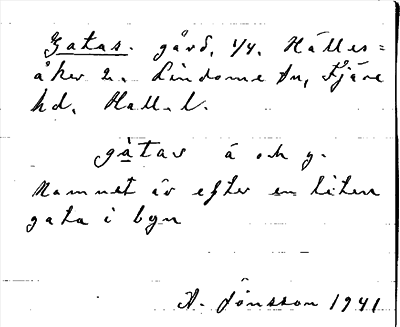 Gatas. gård, 1/4. Hälles=
åker 2. Lindome sn, Fjäre
hd. Hall. l.
gàtas á och y.
Namnet är efter en liten
gata i byn
A. Jönsson 1941